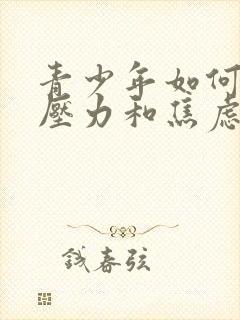 青少年如何
壓力和焦虑
钱春弦